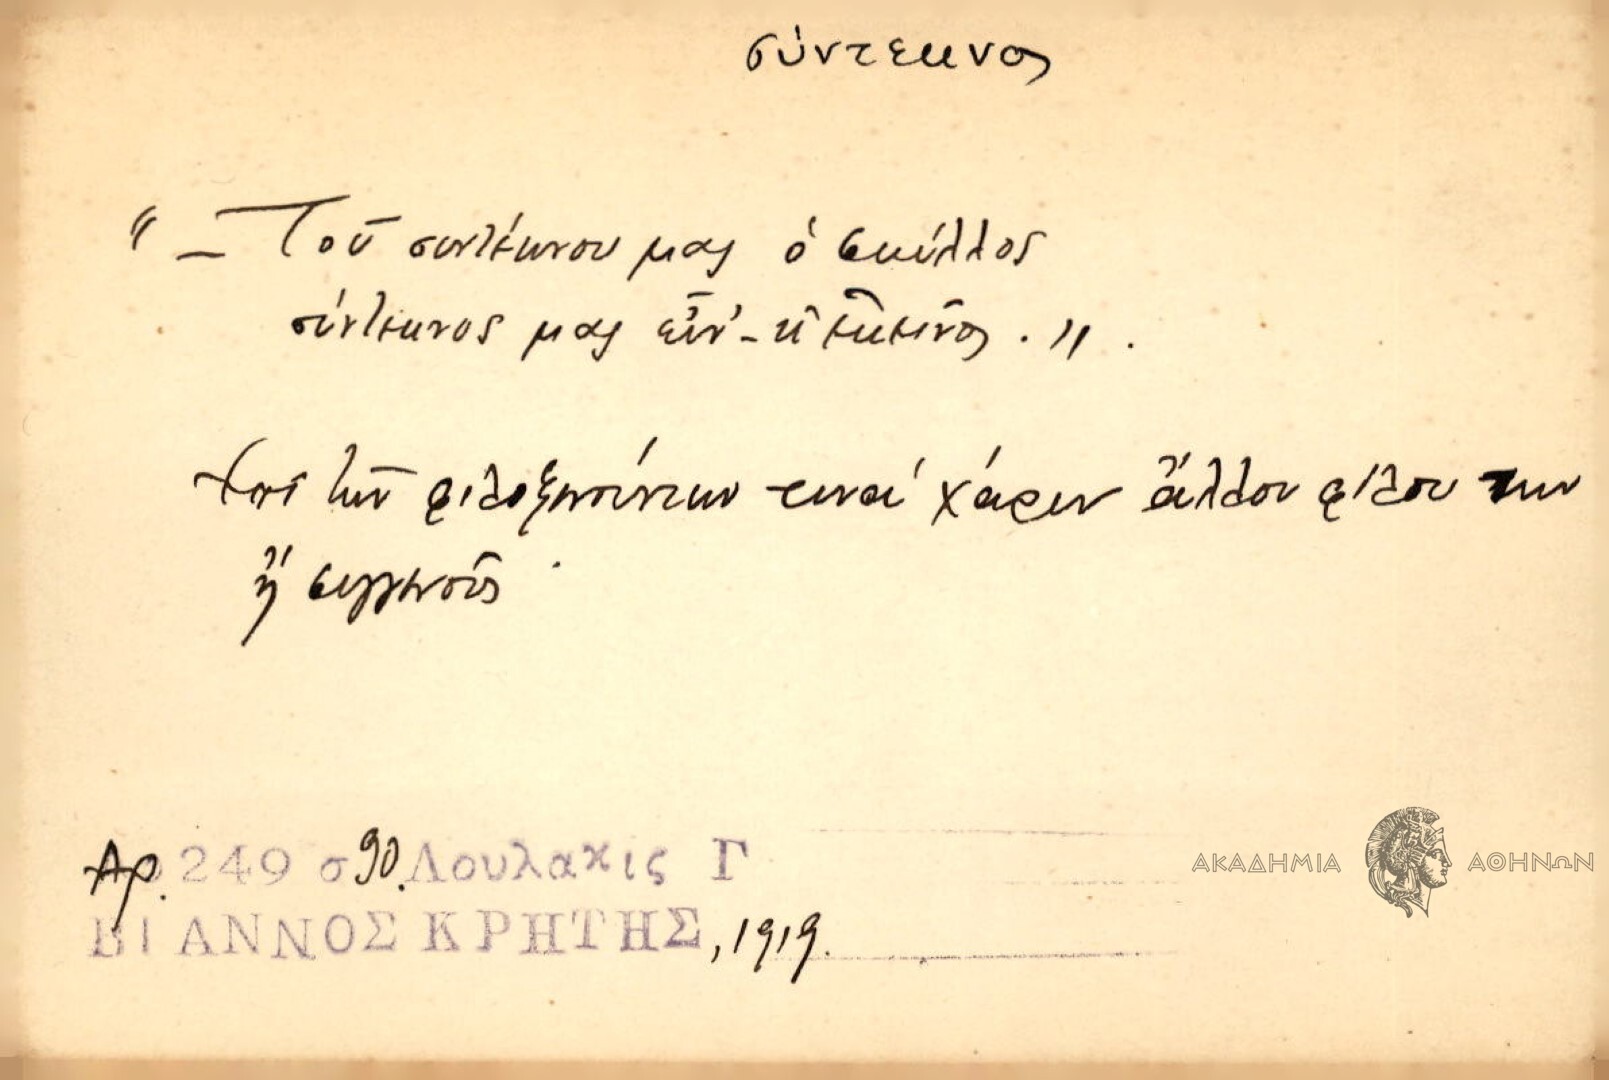 σύντεκνος
"— Τοῦ συντέκνου μας ὁ σκύλλος
σύντεκνος μας εἶν' κ' ἐκεῖνος.".
ἐπὶ τῶν φιλοξενούντων τινά χάριν ἄλλου φίλου των
ἢ συγγενοῦς.
Αρ. 249 σ 90. Λουλακις Γ
ΒΙΑΝΝΟΣ ΚΡΗΤΗΣ, 1919.
ΑΚΑΔΗΜΙΑ ΑΘΗΝΩΝ